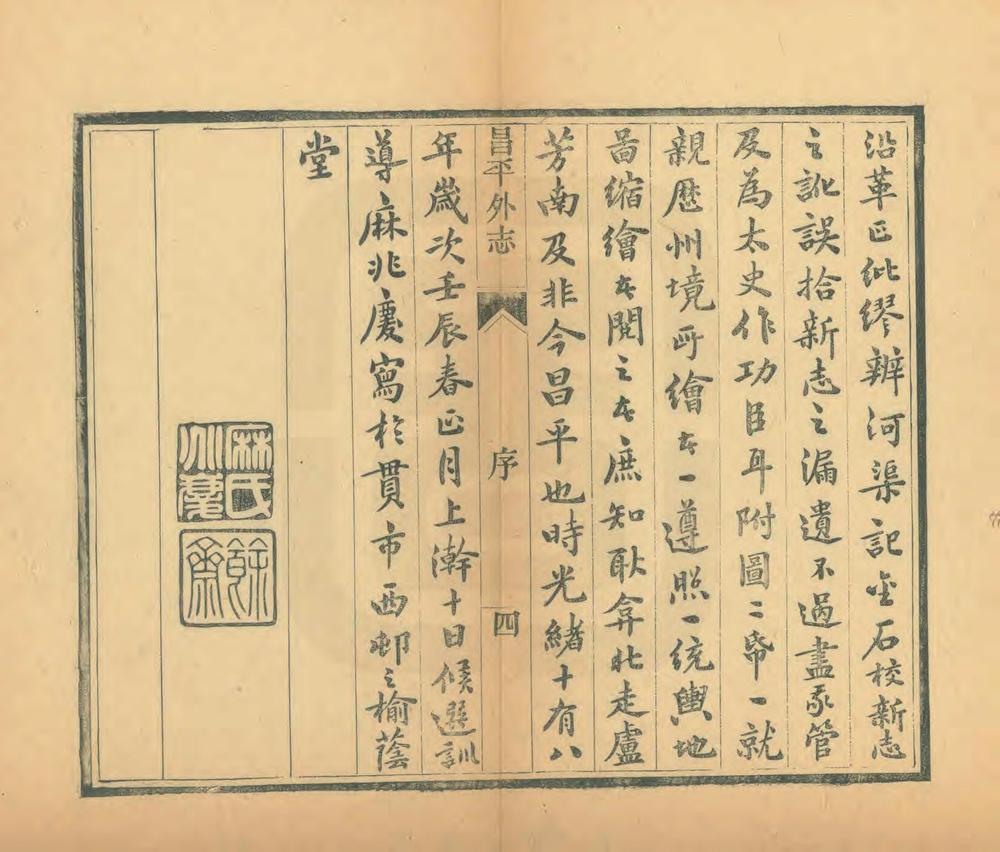 沿革正紕繆辨河渠記金石校新志
之訛誤拾新志之漏遺不過盡豕管
及為太史作功臣耳附圖二帋一就
親歷州境所繪者一遵照一統輿地
啚縮繪者閱之者庶知耿弇北走盧
芳南及非今昌平也時光緒十有八
年歲次壬辰春正月上澣十日候選訓
導麻兆慶寫於貫市西邨之榆蔭
堂
昌平外志
序
四
麻氏
餘齋